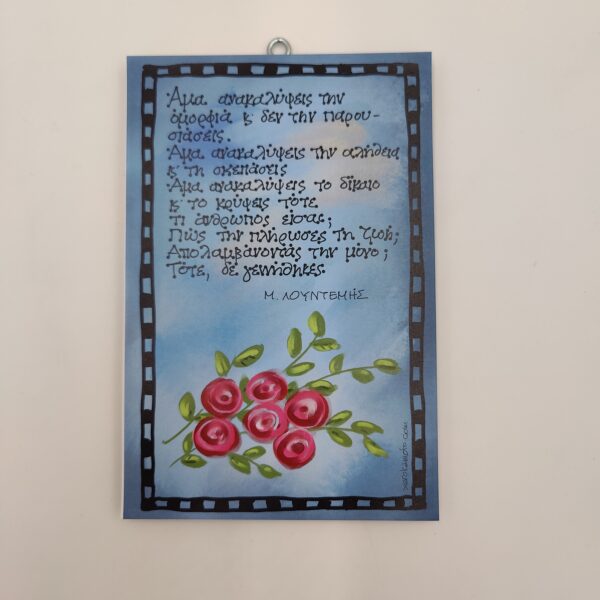 Άμα ανακαλύψεις την
όμορφιά & δεν την παρου-
σιάσεις.
Άμα ανακαλύψεις την αλήθεια
& τη σκεπάσεις
Άμα ανακαλύψεις το δίκαιο
& το κρύψεις τότε
τι άνθρωπος είσαι;
Πώς την πλήρωσες τη ζωή;
Απολαμβάνοντάς την μόνο;
Τότε, δε γεννήθηκες.
Μ. ΛΟΥΝΤΕΜΗΣ